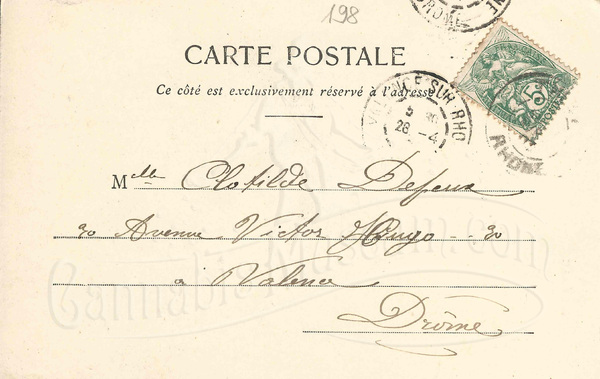 198
CARTE POSTALE
Ce côté est exclusivement réservé à l'adresse
VALENCE-SUR-RHO
28 -4
RHONE
DROME
5
Mlle Clotilde
30 Avenue Victor Hugo -- 30
a Valence
Drôme
CannabisMuseum.com